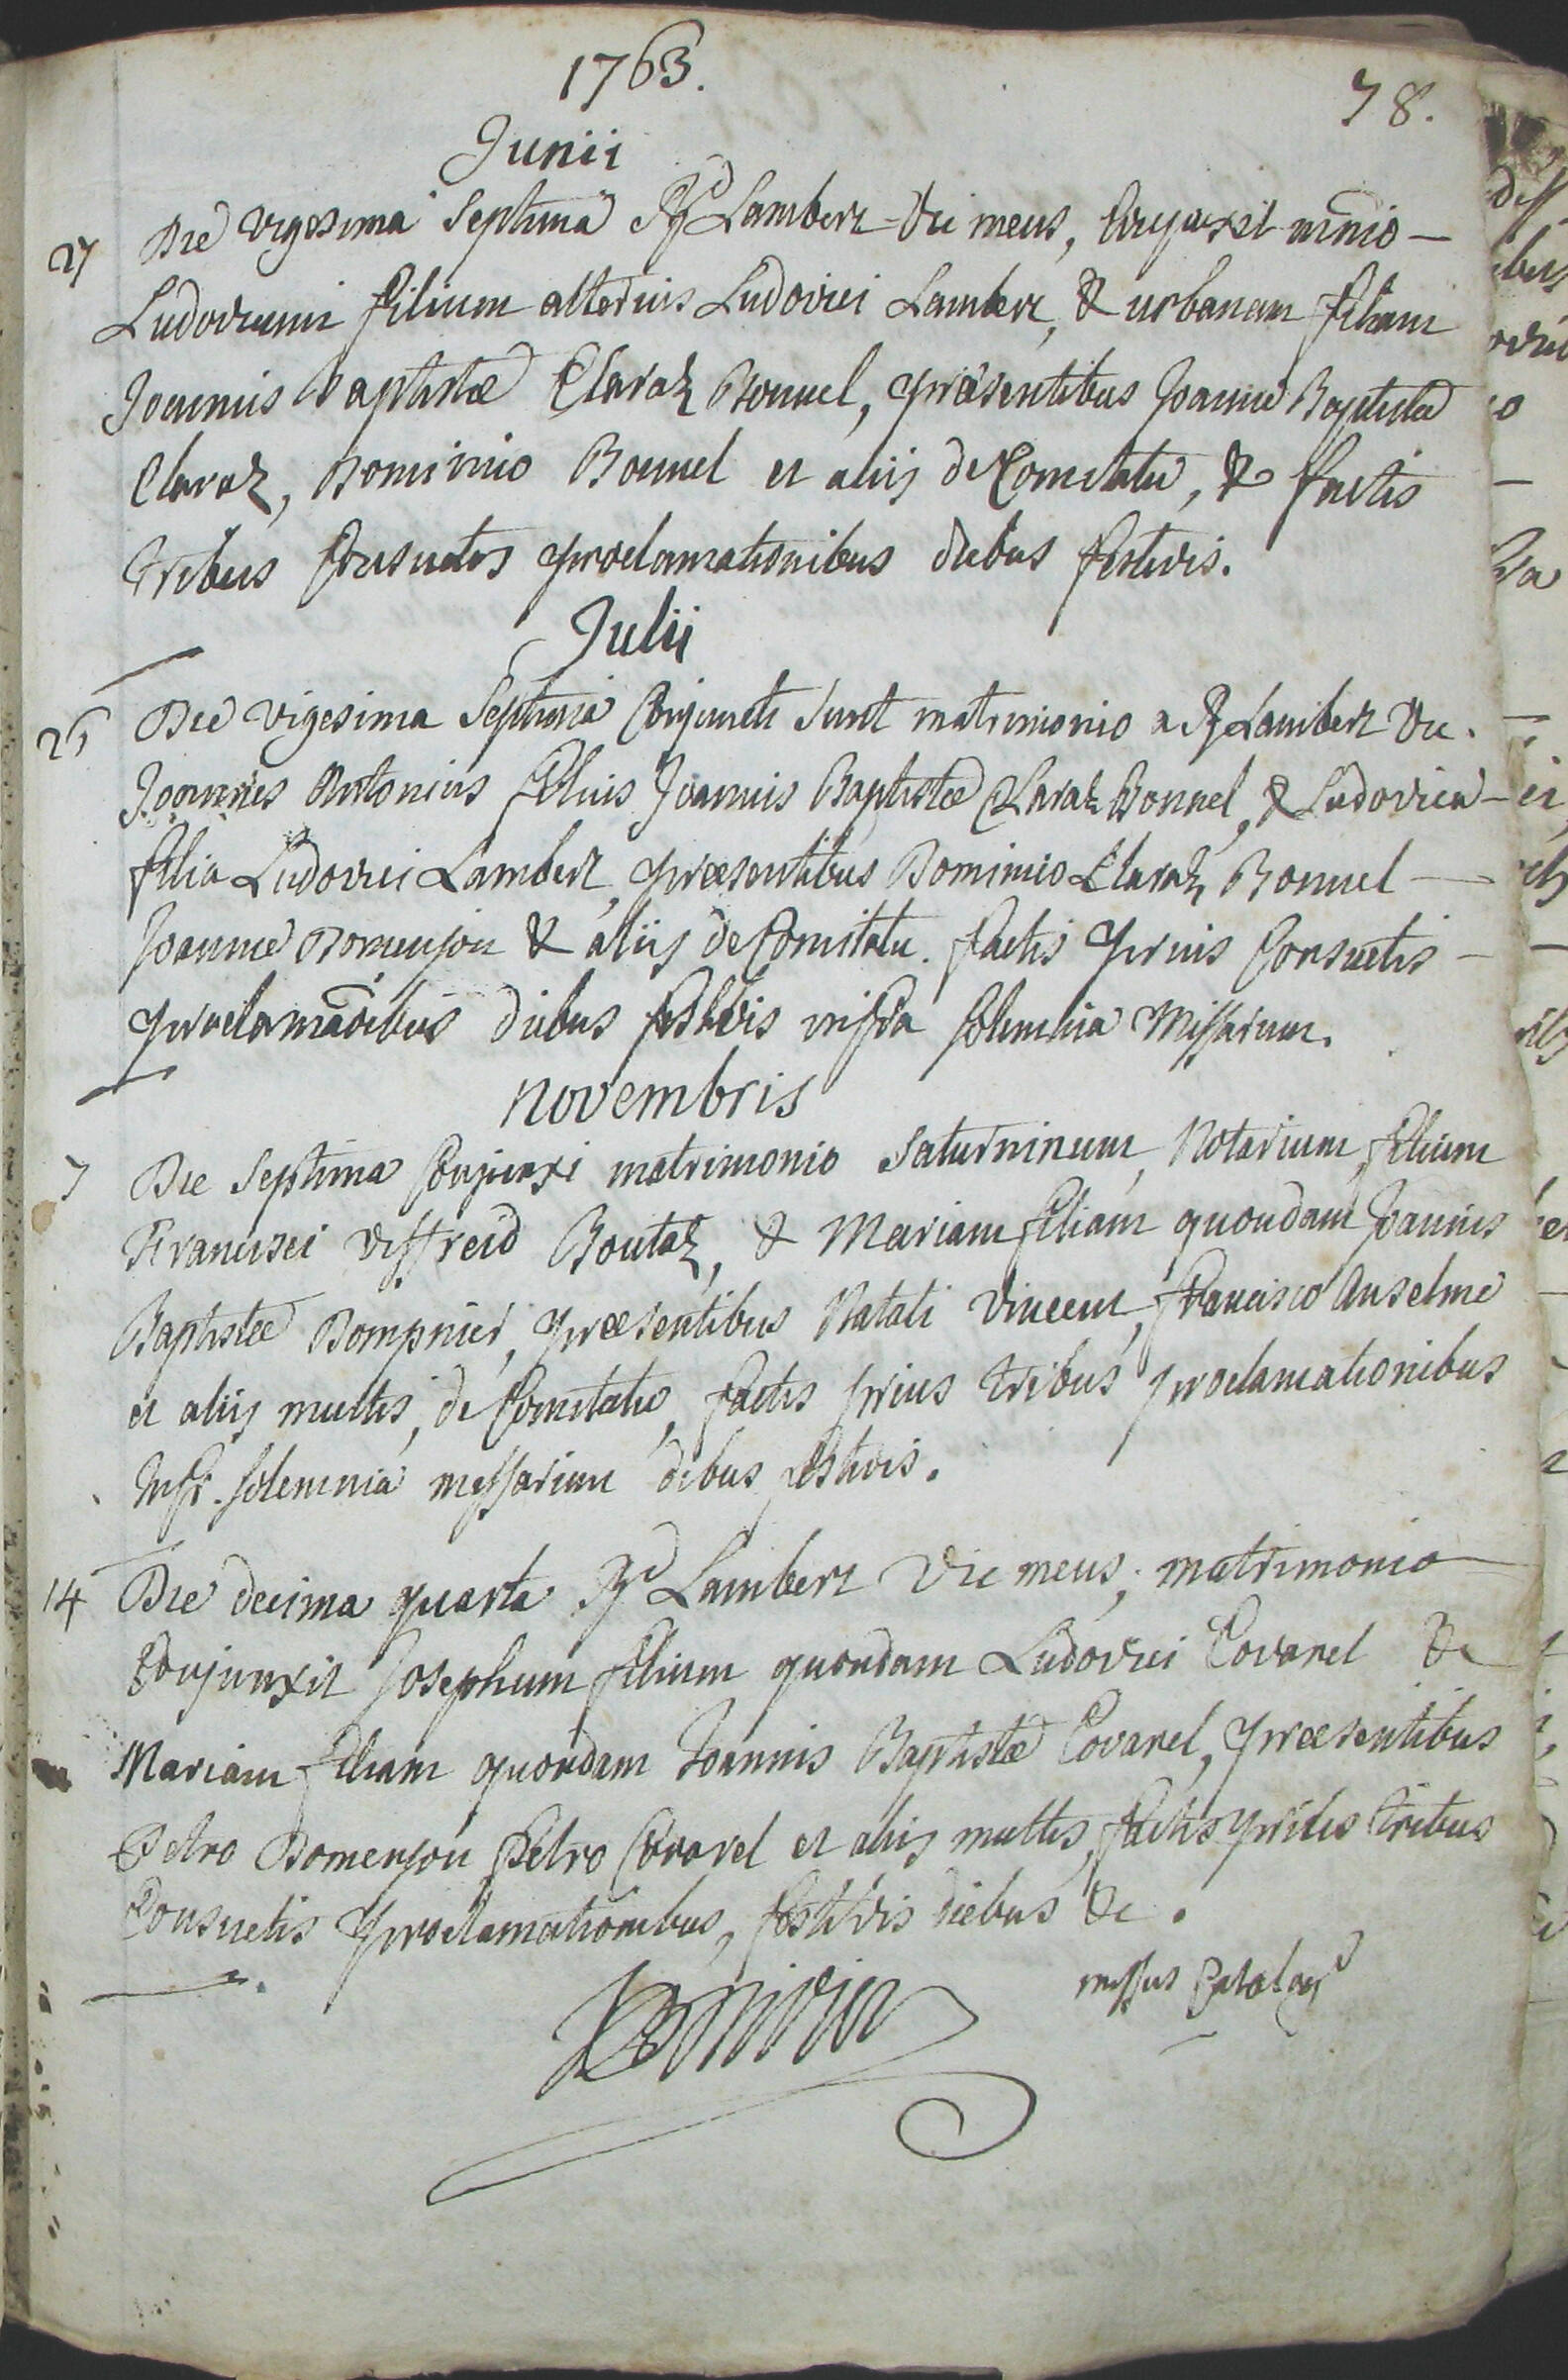 1763.
78.
Junii
27 Die vigesima Septima Rd Lambert Vic meus, Conjunxit mnio —
Ludovicum filium alterius Ludovici Lambert, & urbanam filiam
Joannis Baptistæ Claraz Bonnel, præsentibus Joanne Baptista
Claraz, Dominico Bonnel et aliis de Comitatu, & factis
tribus Consuetis proclamationibus diebus festivis.
Julii
Die vigesima Septima Conjuncti sunt matrimonio a Rd Lambert Vic.
Joannes Antonius filius Joannis Baptistæ Claraz Bonnel, & Ludovica —
filia Ludovici Lambert, præsentibus Dominico Claraz Bonnel —
Joanne Domenjon & aliis de Comitatu. factis prius Consuetis —
proclamãoibus diebus festivis infra solemnia Missarum.
Novembris
7 Die Septima Conjunxi matrimonio Saturninum, Notarium, filium
Francisci Viffreid Boutaz, & Mariam filiam quondam Joannis
Baptistæ Dompnier, præsentibus Natali Vincent, Francisco Anselme
et aliis multis, de Comitatu, factis prius tribus proclamationibus
Infr. solemnia missarum diebus festivis.
14 Die decima quarta Rd Lambert Vic meus, matrimonio
Conjunxit Josephum filium quondam Ludovici Covarel &
Mariam filiam quondam Joannis Baptistæ Covarel, præsentibus
Petro Domenjon Petro Covarel et aliis multis, factis prius tribus
Consuetis proclamationibus, festivis diebus &c.
missus